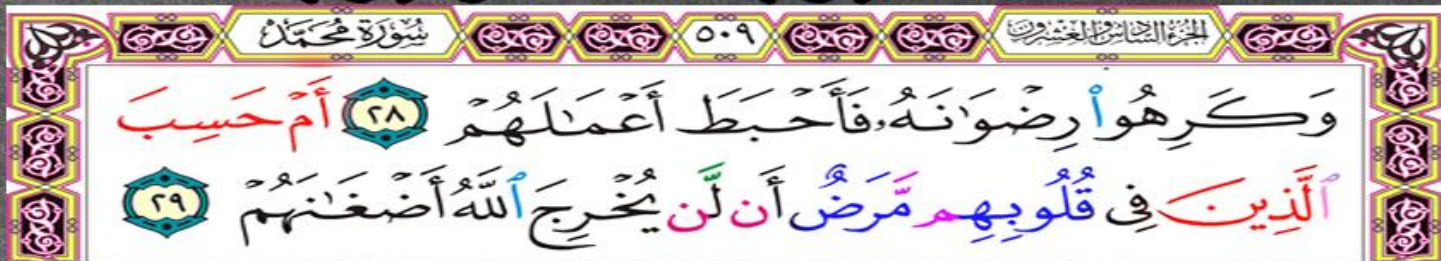 الجزء السادس والعشرون ٥٠٩ سُورَةُ مُحَمَّد
وَكَرِهُوا۟ رِضْوَٰنَهُۥ فَأَحْبَطَ أَعْمَـٰلَهُمْ ٢٨ أَمْ حَسِبَ
ٱلَّذِينَ فِى قُلُوبِهِم مَّرَضٌ أَن لَّن يُخْرِجَ ٱللَّهُ أَضْغَـٰنَهُمْ ٢٩